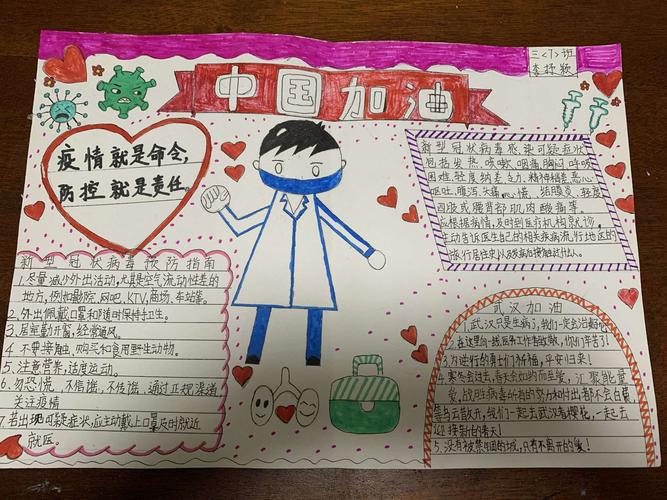 三<7>班
李抒颖
中国加油
疫情就是命令,
防控就是责任。
新型冠状病毒感染可疑症状
包括发热、咳嗽、咽痛、胸闷、呼吸
困难、轻度纳差、乏力、精神稍差、恶心
呕吐、腹泻、头痛、心慌、结膜炎、轻度
四肢或腰背部肌肉酸痛等。
应根据病情,及时到医疗机构就诊,
主动告诉医生自己的相关疾病流行地区的
旅行居住史以及发病后接触过什么人。
新型冠状病毒预防指南
1.尽量减少外出活动,尤其是空气流动性差的
地方,例如影院、网吧、KTV、商场、车站等。
2.外出佩戴口罩和随时保持手卫生。
3.居室勤开窗,经常通风。
4.不要接触、购买和食用野生动物。
5.注意营养,适度运动。
6.勿恐慌、不信谣、不传谣、通过正规渠道
关注疫情
7.若出现可疑症状,应主动戴上口罩及时就近
就医。
武汉加油
1.武汉只是生病了,我们一定会治好
2.在这里向一线医务工作者致敬,你们辛苦了!
3.为逆行的勇士们祈福,平安归来!
4.寒冬会过去,春天会如约而至,汇聚能量
爱,战胜病毒所有的努力和付出都不会白费
等白云散开,我们一起去武汉看樱花,一起去
迎接新的春天!
5.没有被禁 的城,只有不离开的爱!